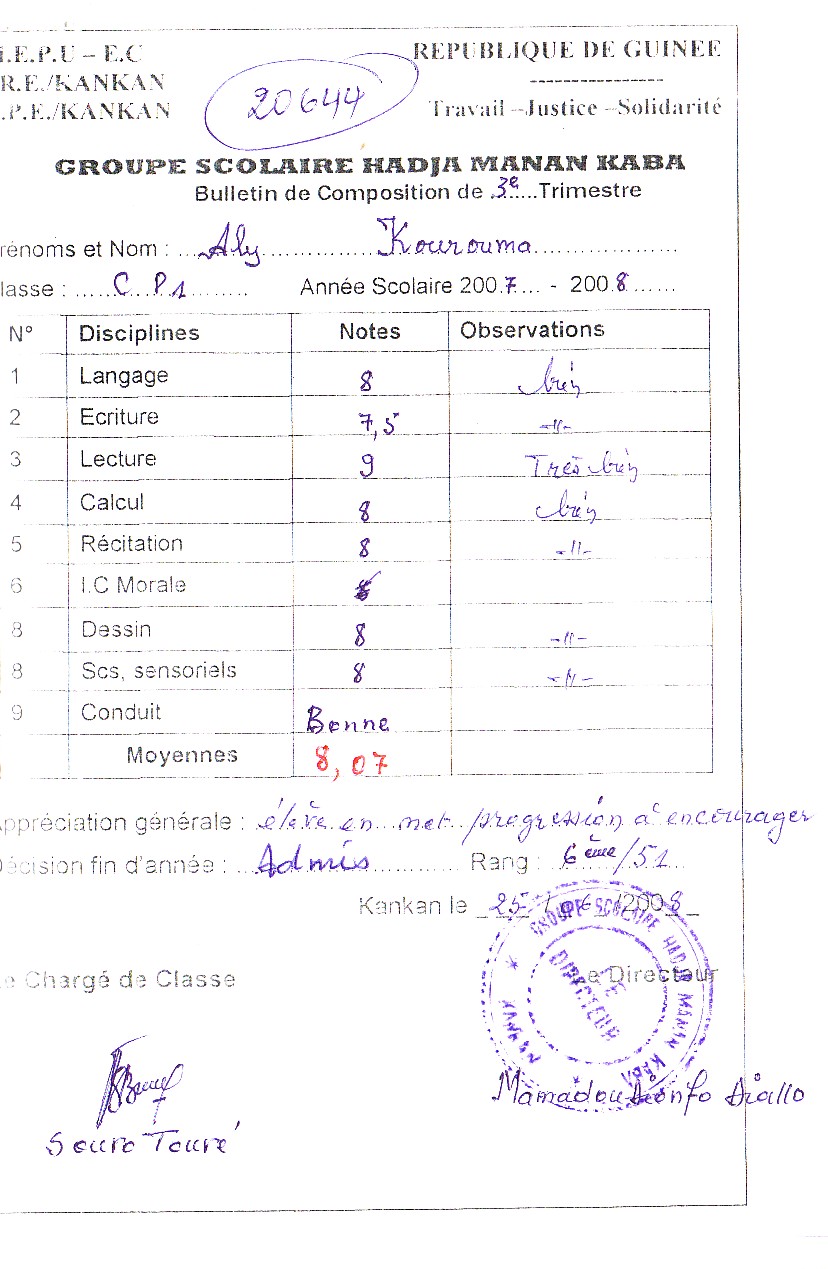 .E.P.U – E.C
REPUBLIQUE DE GUINEE
R.E./KANKAN
---------------
.P.E./KANKAN
Travail –Justice –Solidarité
20644
GROUPE SCOLAIRE HADJA MANAN KABA
Bulletin de Composition de 3e.....Trimestre
rénoms et Nom : ...Aly...............Kourouma....................
lasse : ......C...P1......... Année Scolaire 200.7... - 200.8......
N° Disciplines Notes Observations
1 Langage 8 bien
2 Ecriture 7,5 -//-
3 Lecture 9 Très bien
4 Calcul 8 bien
5 Récitation 8 -//-
6 I.C Morale
8 Dessin 8 -//-
8 Scs, sensoriels 8 -//-
9 Conduit Bonne
Moyennes 8,07
Appréciation générale : élève en net progression à encourager
Décision fin d'année : ...Admis............. Rang : 6ème/51...
Kankan le _25_/_06_/2008_
e Chargé de Classe
Le Directeur
GROUPE SCOLAIRE HADJA MANAN KABA
* KANKAN *
LE DIRECTEUR
Mamadou Diallo
Touré